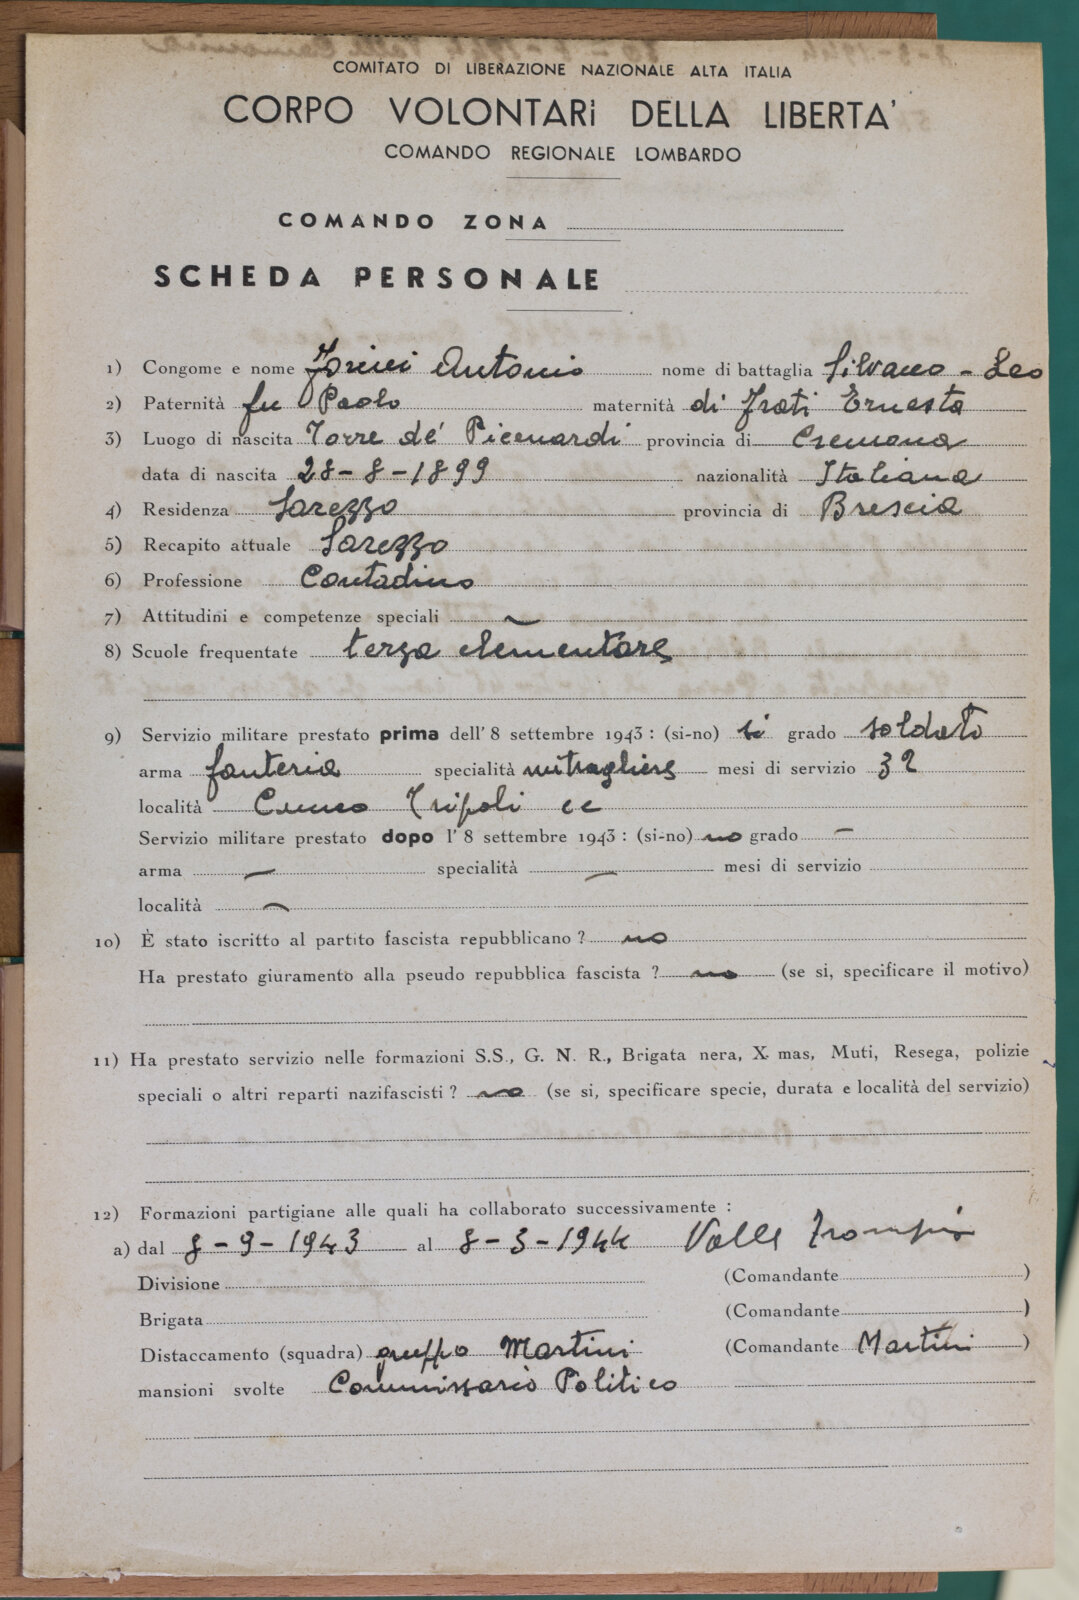 COMITATO DI LIBERAZIONE NAZIONALE ALTA ITALIA
CORPO VOLONTARi DELLA LIBERTA'
COMANDO REGIONALE LOMBARDO
COMANDO ZONA
SCHEDA PERSONALE
1) Congome e nome Antonio nome di battaglia Silvano - Leo
2) Paternità fu Paolo maternità di Frati Ernesta
3) Luogo di nascita Torre de' Picenardi provincia di Cremona
data di nascita 28-8-1899 nazionalità Italiana
4) Residenza Sarezzo provincia di Brescia
5) Recapito attuale Sarezzo
6) Professione Contadino
7) Attitudini e competenze speciali ~
8) Scuole frequentate terza elementare
9) Servizio militare prestato prima dell'8 settembre 1943: (si-no) si grado soldato
arma fanteria specialità mitragliere mesi di servizio 32
località Cuneo Tripoli ec
Servizio militare prestato dopo l'8 settembre 1943: (si-no) no grado –
arma – specialità – mesi di servizio
località –
10) È stato iscritto al partito fascista repubblicano? no
Ha prestato giuramento alla pseudo repubblica fascista? no (se si, specificare il motivo)
11) Ha prestato servizio nelle formazioni S.S., G. N. R., Brigata nera, X. mas, Muti, Resega, polizie
speciali o altri reparti nazifascisti? no (se si, specificare specie, durata e località del servizio)
12) Formazioni partigiane alle quali ha collaborato successivamente:
a) dal 8-9-1943 al 8-3-1944 Valle Trompia
Divisione (Comandante )
Brigata (Comandante )
Distaccamento (squadra) gruppo Martini (Comandante Martini )
mansioni svolte Commissario Politico